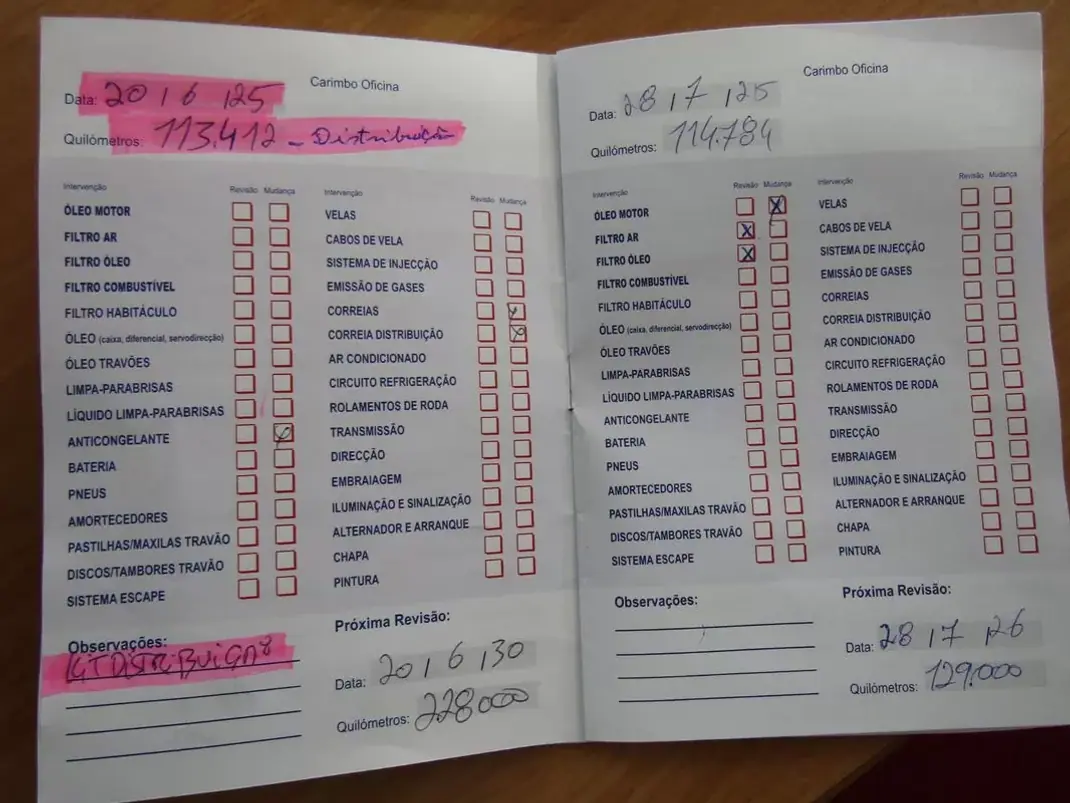 Carimbo Oficina
Data: 20 / 6 / 25
Quilómetros: 113.412 - Distribuição
Intervenção Revisão Mudança
ÓLEO MOTOR
FILTRO AR
FILTRO ÓLEO
FILTRO COMBUSTÍVEL
FILTRO HABITÁCULO
ÓLEO (caixa, diferencial, servodirecção)
ÓLEO TRAVÕES
LIMPA-PARABRISAS
LÍQUIDO LIMPA-PARABRISAS
ANTICONGELANTE X
BATERIA
PNEUS
AMORTECEDORES
PASTILHAS/MAXILAS TRAVÃO
DISCOS/TAMBORES TRAVÃO
SISTEMA ESCAPE
Intervenção Revisão Mudança
VELAS
CABOS DE VELA
SISTEMA DE INJECÇÃO
EMISSÃO DE GASES
CORREIAS X
CORREIA DISTRIBUIÇÃO X
AR CONDICIONADO
CIRCUITO REFRIGERAÇÃO
ROLAMENTOS DE RODA
TRANSMISSÃO
DIRECÇÃO
EMBRAIAGEM
ILUMINAÇÃO E SINALIZAÇÃO
ALTERNADOR E ARRANQUE
CHAPA
PINTURA
Observações:
KIT DISTRIBUIÇÃO
Próxima Revisão:
Data: 20 / 6 / 30
Quilómetros: 228000
Carimbo Oficina
Data: 28 / 7 / 25
Quilómetros: 114.784
Intervenção Revisão Mudança
ÓLEO MOTOR X
FILTRO AR X
FILTRO ÓLEO X
FILTRO COMBUSTÍVEL
FILTRO HABITÁCULO
ÓLEO (caixa, diferencial, servodirecção)
ÓLEO TRAVÕES
LIMPA-PARABRISAS
LÍQUIDO LIMPA-PARABRISAS
ANTICONGELANTE
BATERIA
PNEUS
AMORTECEDORES
PASTILHAS/MAXILAS TRAVÃO
DISCOS/TAMBORES TRAVÃO
SISTEMA ESCAPE
Intervenção Revisão Mudança
VELAS
CABOS DE VELA
SISTEMA DE INJECÇÃO
EMISSÃO DE GASES
CORREIAS
CORREIA DISTRIBUIÇÃO
AR CONDICIONADO
CIRCUITO REFRIGERAÇÃO
ROLAMENTOS DE RODA
TRANSMISSÃO
DIRECÇÃO
EMBRAIAGEM
ILUMINAÇÃO E SINALIZAÇÃO
ALTERNADOR E ARRANQUE
CHAPA
PINTURA
Observações:
Próxima Revisão:
Data: 28 / 7 / 26
Quilómetros: 129.000